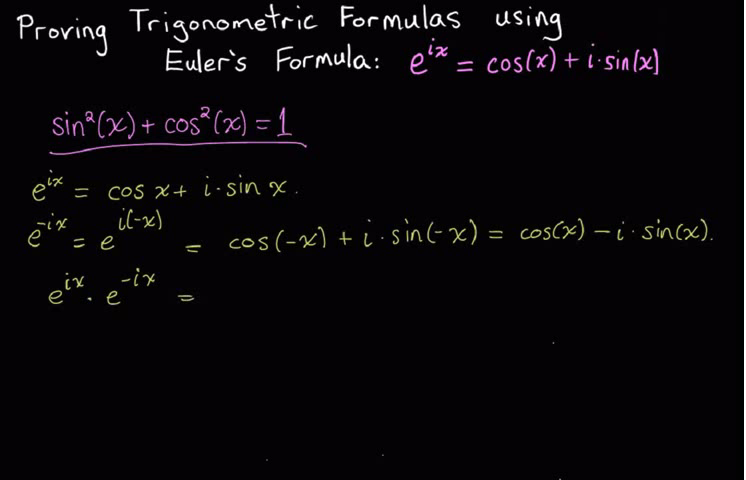 Proving Trigonometric Formulas using
Euler's Formula: e^{ix} = cos(x) + i·sin(x)
sin²(x) + cos²(x) = 1
e^{ix} = cos x + i·sin x.
e^{-ix} = e^{i(-x)} = cos(-x) + i·sin(-x) = cos(x) - i·sin(x).
e^{ix}·e^{-ix} =